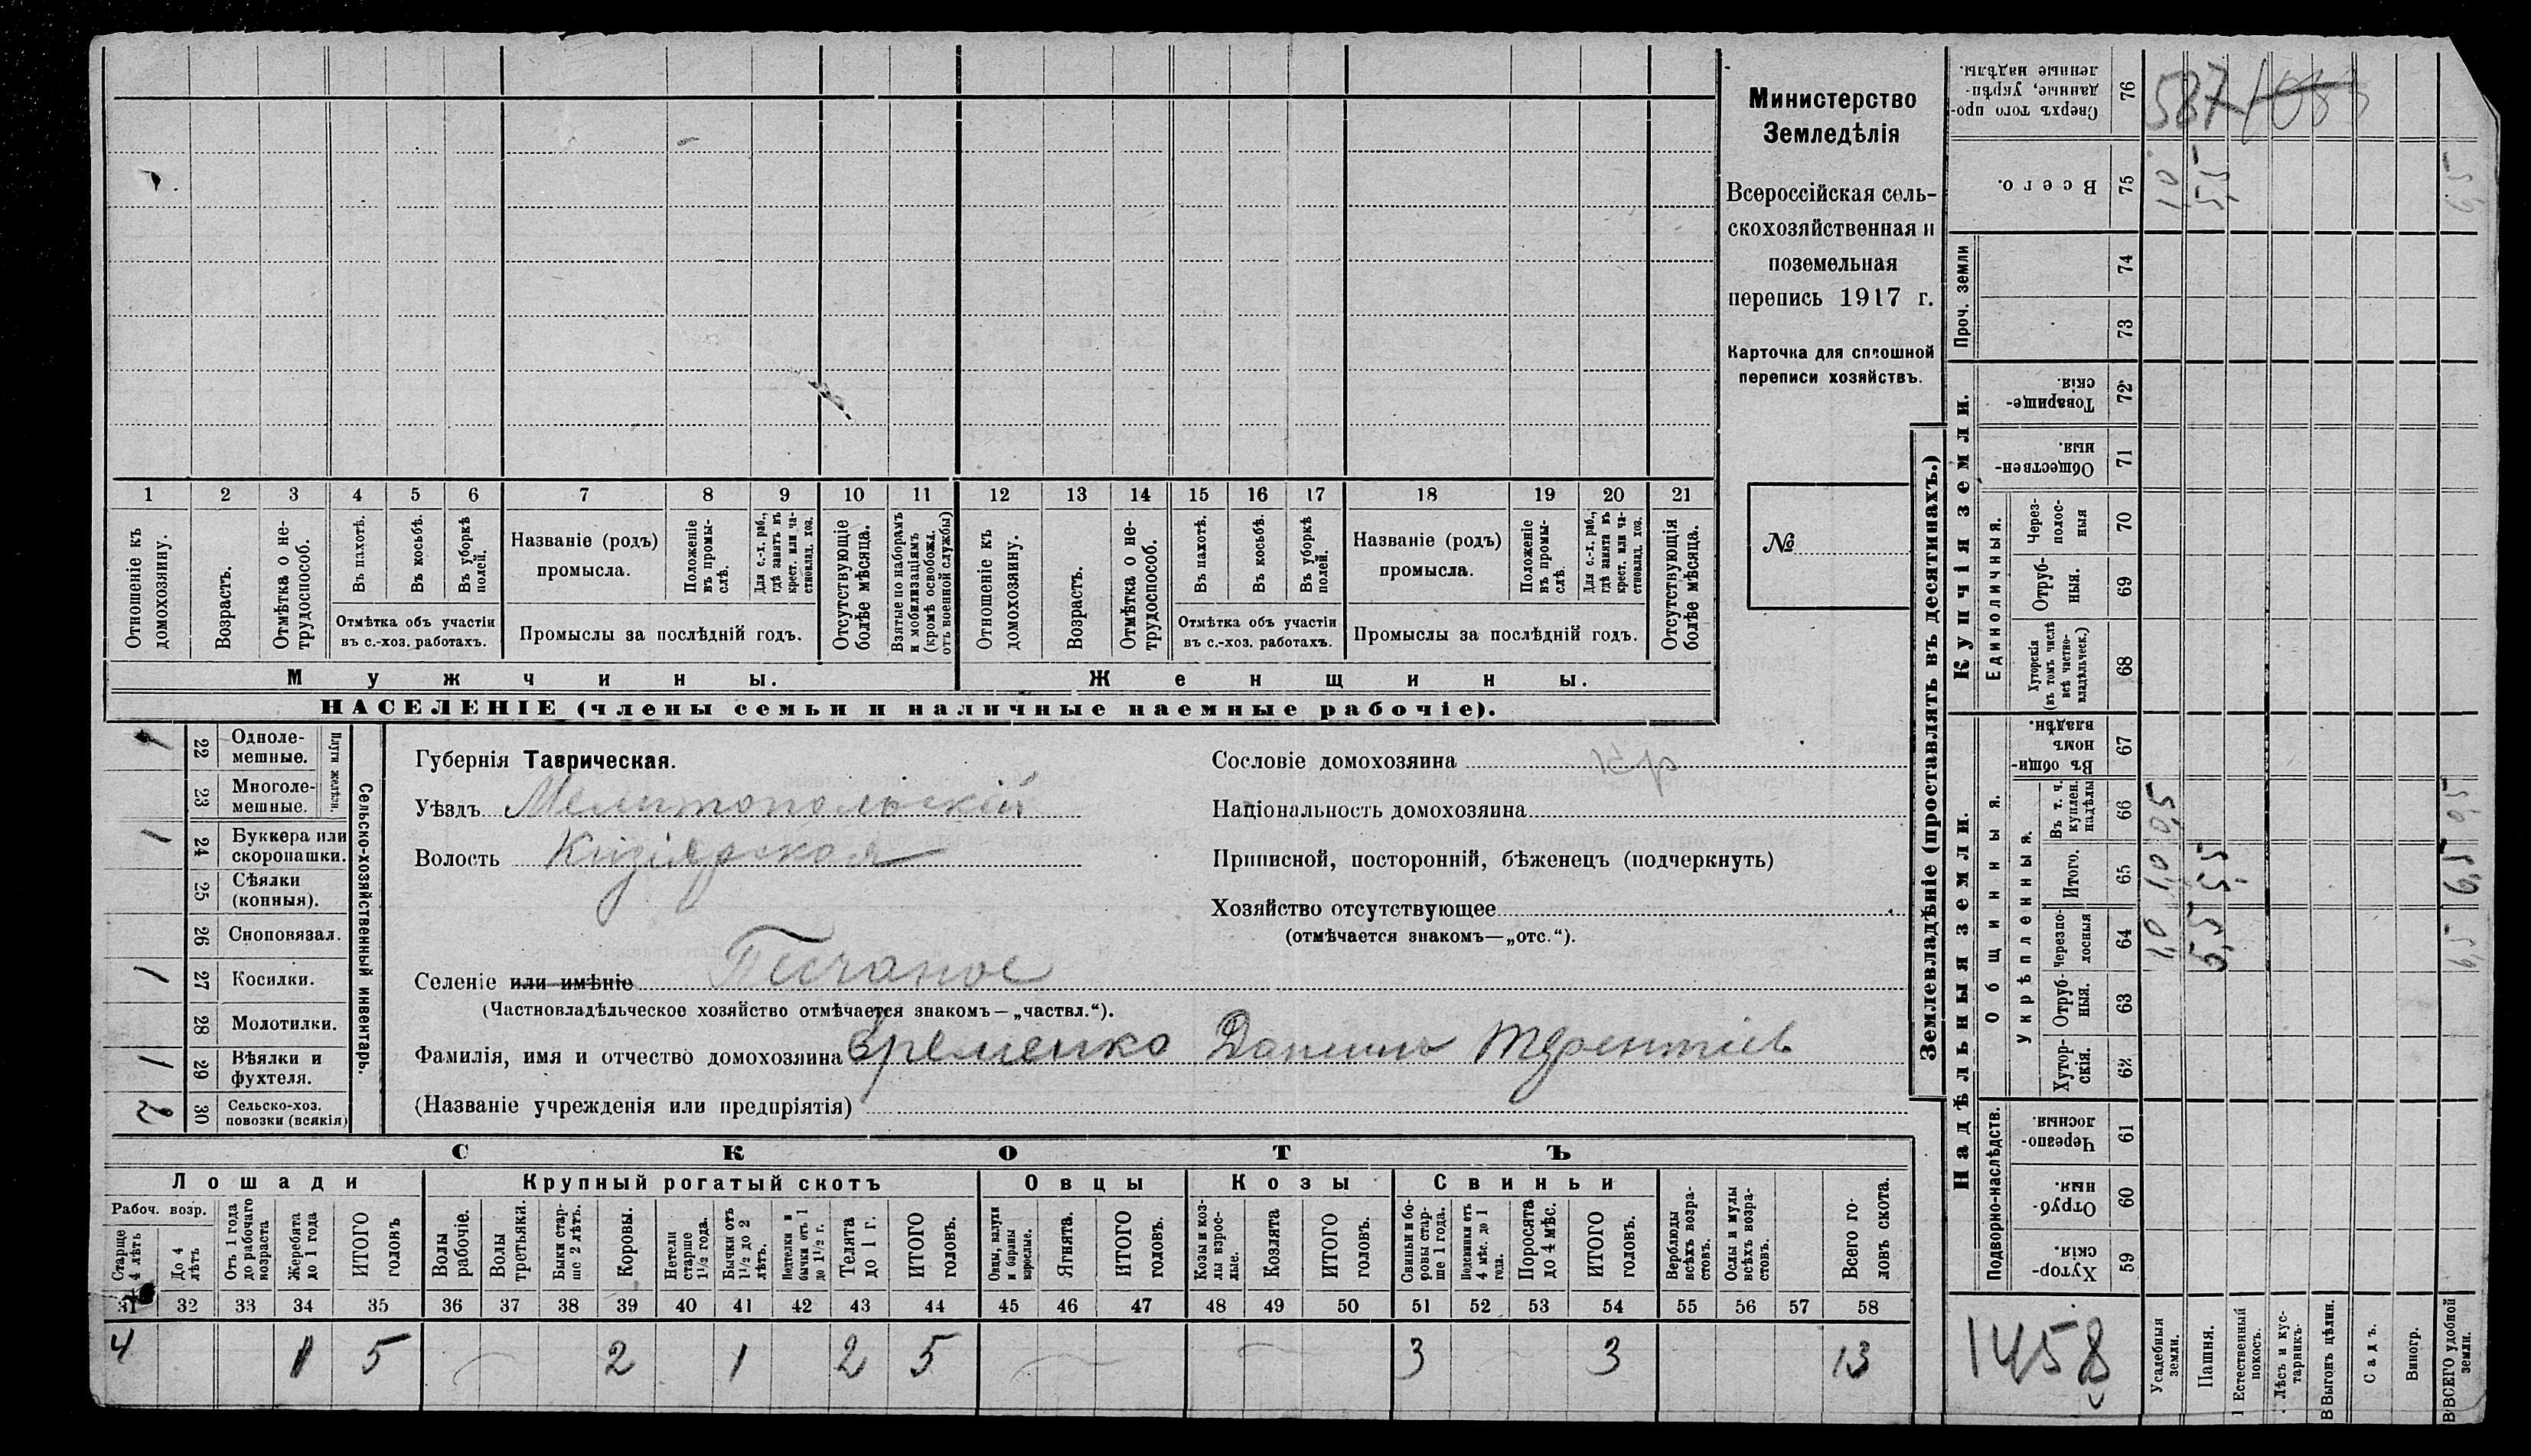 Министерство
Земледѣлія
Всероссійская сель-
скохозяйственная и
поземельная
перепись 1917 г.
Карточка для сплошной
переписи хозяйствъ.
№
1 2 3 4 5 6 7 8 9 10 11 12 13 14 15 16 17 18 19 20 21
Отношеніе къ домохозяину.
Возрастъ.
Отмѣтка о не-трудоспособ.
Въ пахотѣ.
Въ косьбѣ.
Въ уборкѣ полей.
Отмѣтка объ участіи въ с.-хоз. работахъ.
Названіе (родъ) промысла.
Положеніе въ промы-слѣ.
Для с.-х. раб., гдѣ занятъ въ крест. или ча-стновлад. хоз.
Промыслы за послѣдній годъ.
Отсутствующіе болѣе мѣсяца.
Взятые по наборамъ и мобилизаціямъ (кромѣ освобожд. отъ военной службы)
Отношеніе къ домохозяину.
Возрастъ.
Отмѣтка о не-трудоспособ.
Въ пахотѣ.
Въ косьбѣ.
Въ уборкѣ полей.
Отмѣтка объ участіи въ с.-хоз. работахъ.
Названіе (родъ) промысла.
Положеніе въ промы-слѣ.
Для с.-х. раб., гдѣ занята въ крест. или ча-стновлад. хоз.
Промыслы за послѣдній годъ.
Отсутствующія болѣе мѣсяца.
Мужчины.
Женщины.
НАСЕЛЕНІЕ (члены семьи и наличные наемные рабочіе).
Сельско-хозяйственный инвентарь.
Плуги желѣзн.
22 Одноле-мешные.
23 Многоле-мешные.
1 24 Буккера или скоропашки.
25 Сѣялки (конныя).
26 Сноповязал.
1 27 Косилки.
28 Молотилки.
1 29 Вѣялки и фухтеля.
2 30 Сельско-хоз. повозки (всякія)
Губернія Таврическая.
Уѣздъ Мелитопольскій
Волость Кизіярская
Селеніе или имѣніе Песчаное
(Частновладѣльческое хозяйство отмѣчается знакомъ—„частвл.“).
Фамилія, имя и отчество домохозяина Еременко Данило Терентіев
(Названіе учрежденія или предпріятія)
Сословіе домохозяина кр
Національность домохозяина
Приписной, посторонній, бѣженецъ (подчеркнуть)
Хозяйство отсутствующее
(отмѣчается знакомъ—„отс.“).
СКОТЪ
Лошади
Крупный рогатый скотъ
Овцы
Козы
Свиньи
Рабоч. возр.
Старше 4 лѣтъ
До 4 лѣтъ
Отъ 1 года до рабочаго возраста
Жеребята до 1 года
ИТОГО головъ
Волы рабочіе.
Волы третьяки.
Быки стар-ше 2 лѣтъ.
Коровы.
Нетели старше 1½ года.
Бычки отъ 1½ до 2 лѣтъ.
Подтелки и бычки отъ 1 до 1½ г.
Телята до 1 г.
ИТОГО головъ.
Овцы, валухи и бараны взрослые.
Ягнята.
ИТОГО головъ.
Козы и коз-лы взрос-лые.
Козлята
ИТОГО головъ.
Свиньи и бо-ровы стар-ше 1 года.
Подсвинки отъ 4 мѣс. до 1 года.
Поросята до 4 мѣс.
ИТОГО головъ.
Верблюды всѣхъ возра-стовъ.
Ослы и мулы всѣхъ возра-стовъ.
Всего го-ловъ скота.
31 32 33 34 35 36 37 38 39 40 41 42 43 44 45 46 47 48 49 50 51 52 53 54 55 56 57 58
4 1 5 2 1 2 5 3 3 13
Землевладѣніе (проставлять въ десятинахъ.)
Купчія земли.
Надѣльныя земли.
Сверхъ того про-данные, укрѣп-ленные надѣлы. 76
587
Всего. 75
Проч. земли
74
73
Товарище-скія. 72
Обществен-ныя. 71
Единоличныя.
Через-полос-ныя 70
Отруб-ныя. 69
Хуторскія (въ томъ числѣ всѣ частно-владѣльческ.) 68
Общинныя.
Въ общи-номъ владѣн. 67
Укрѣпленныя.
Въ т. ч. куплен. надѣлы 66
Итого. 65
Черезпо-лосныя 64
Отруб-ныя. 63
Хутор-скія. 62
Подворно-наслѣдств.
Черезпо-лосныя. 61
Отруб-ныя. 60
Хутор-скія. 59
1458
Усадебныя земли.
Пашня.
Естественный покосъ.
Лѣсъ и кус-тарникъ.
Выгонъ цѣлин.
Садъ.
Виногр.
ВСЕГО удобной земли.